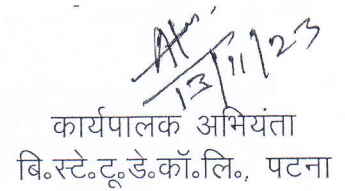 13/11/23
कार्यपालक अभियंता
बि॰स्टे॰टू॰डे॰कॉ॰लि॰, पटना